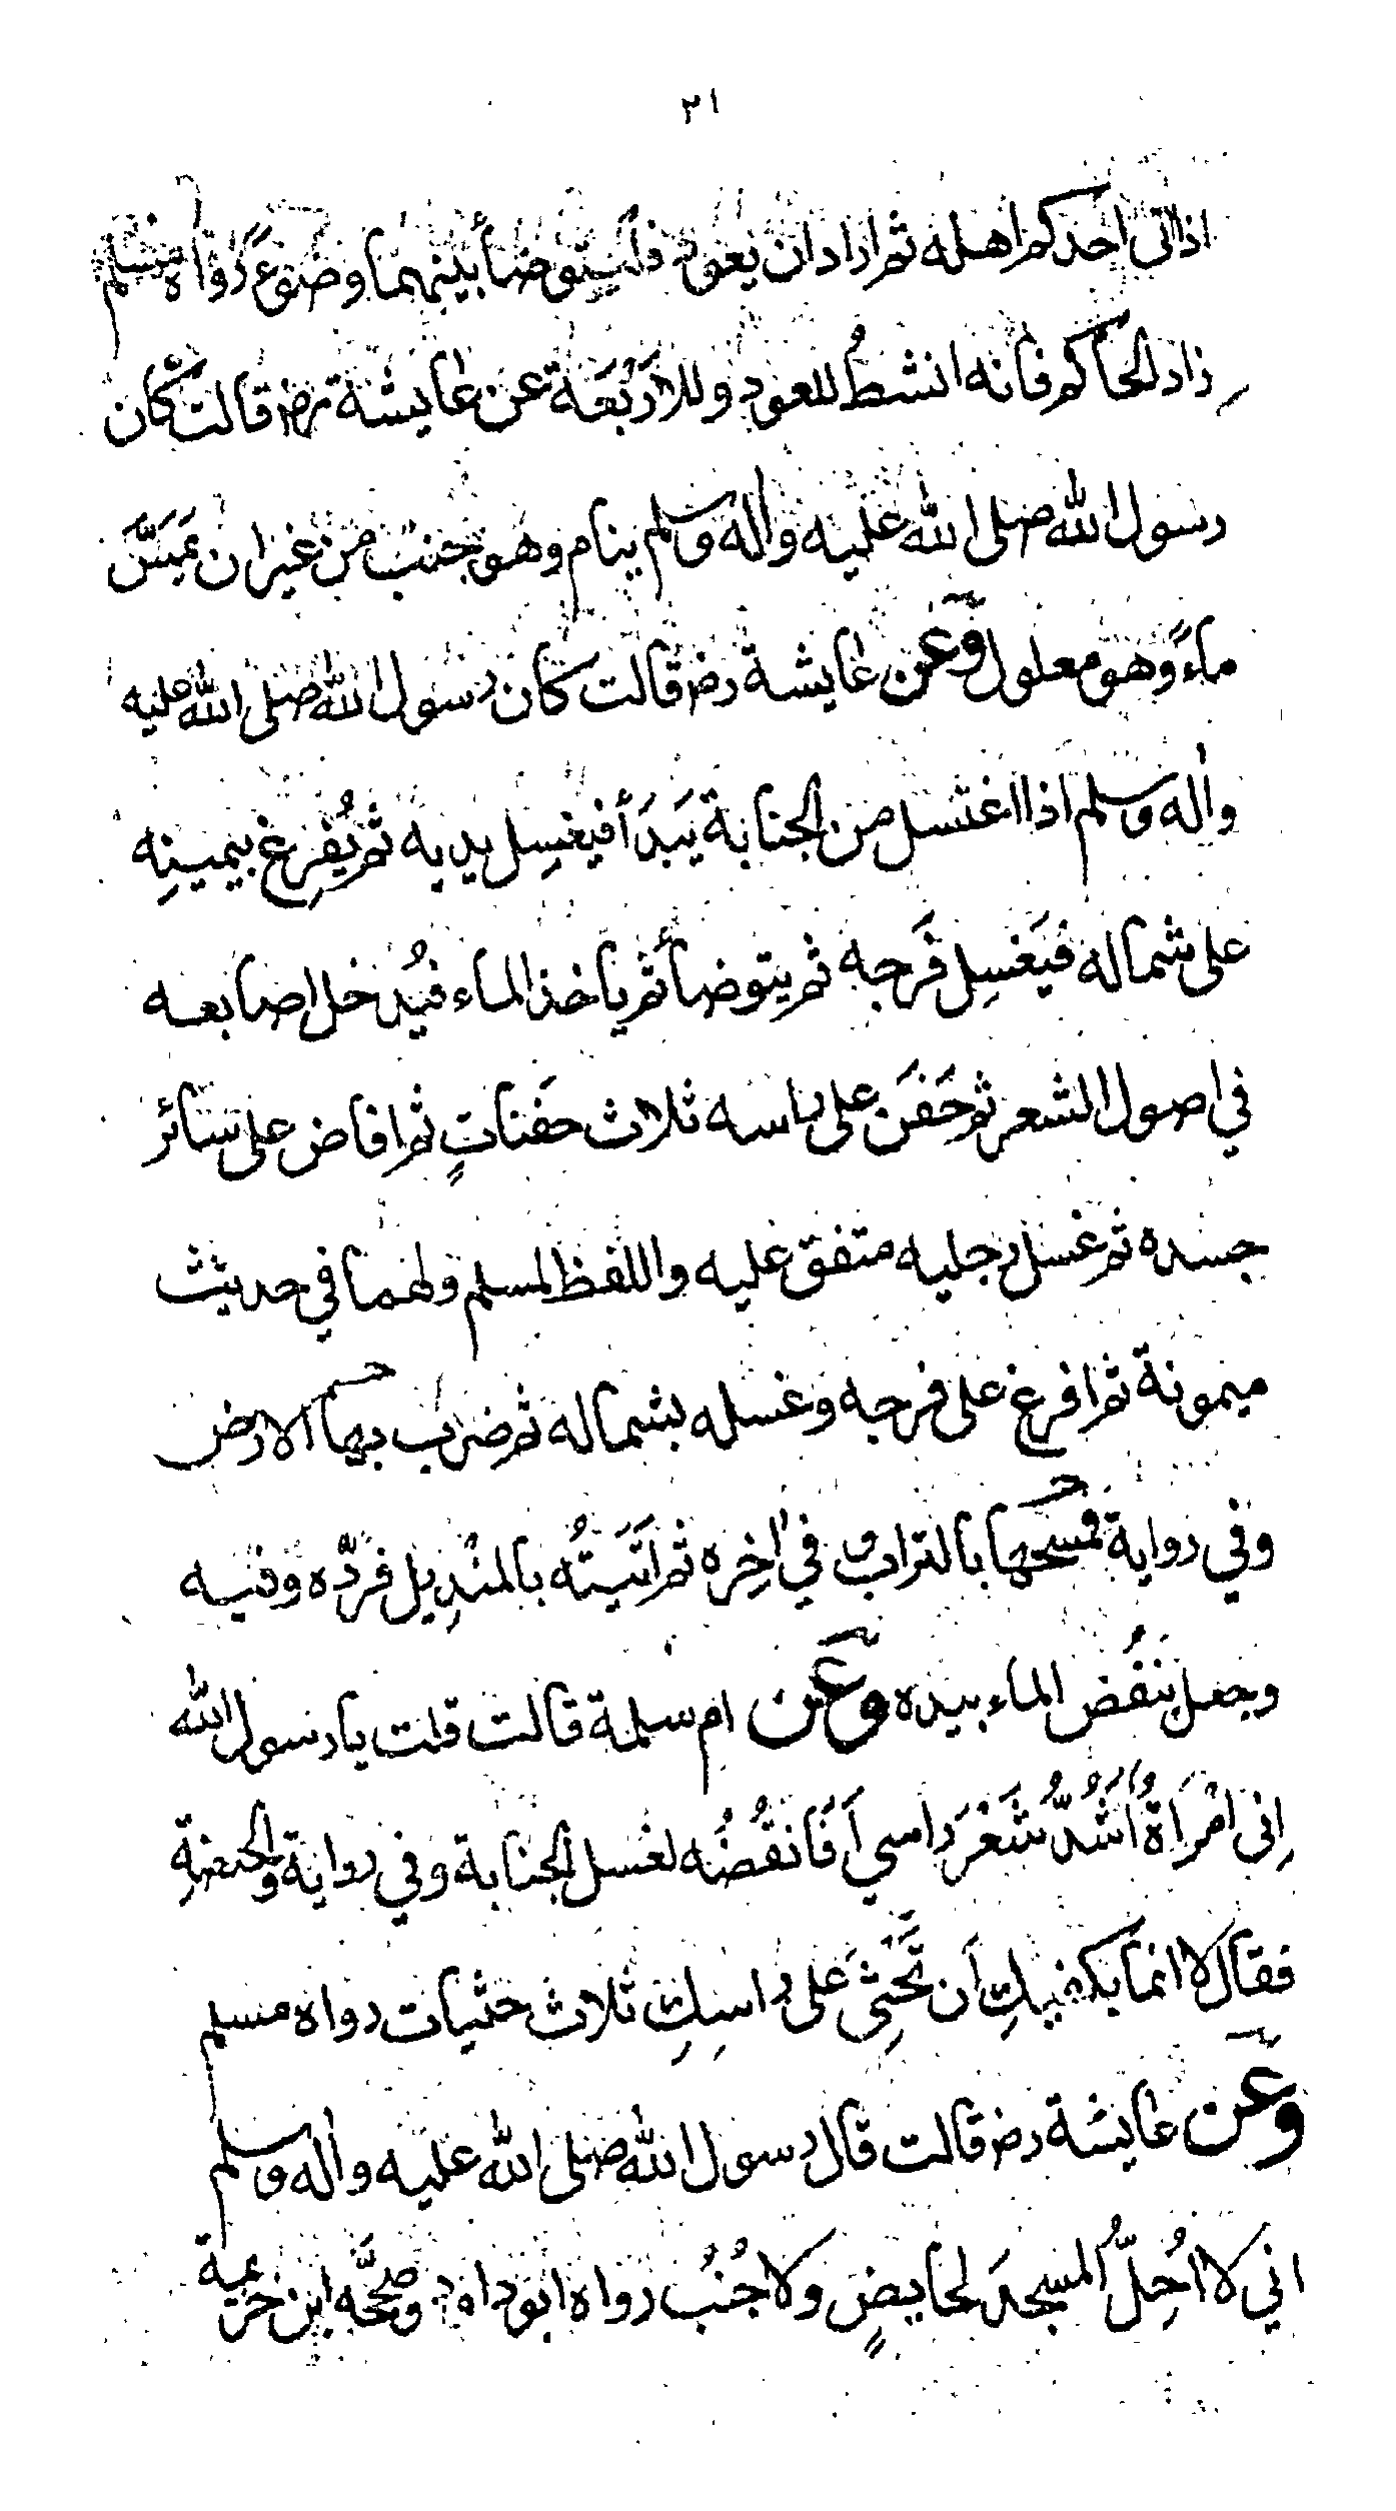 ٢١
اذا اتى احدكم اهله ثم اراد ان يعود فليتوضأ بينهما وضوءً رواه مسلم
زاد الحاكم فانه انشطُ للعود وللاربَعَة عن عايشة رض قالت كان
رسول الله صلى الله عليه واله وسلم ينام وهو جنب من غير ان يمَسَّ
ماءً وهو معلول وعن عايشة رض قالت كان رسول الله صلى الله عليه
واله وسلم اذا اغتسل من الجنابة يَبدَأ فيغسِل يديه ثم يُفرِغ بيمينِه
على شماله فيَغسِل فَرجه ثم يتوضأ ثم ياخذ الماء فيُدخل اصابعه
في اصول الشعر ثم حَفَن على راسه ثلاث حفَناتٍ ثم افاض على سائر
جسده ثم غسل رجليه متفق عليه واللفظ لمسلم ولهما في حديث
ميمونة ثم افرغ على فرجه وغسله بشماله ثم ضرب بها الارض
وفي رواية فمسحها بالتراب وفي اخِره ثم اتَيتُه بالمندِيل فردّه وفيه
وجعل ينفُض الماء بيده وعن ام سلمة قالت قلت يا رسول الله
اِنى امْرَاةٌ اَشُدُّ شَعْرَ راسي اَفَانقُضُه لغسل الجنابة وفي رواية والحيضةِ
فقال لا انما يكفيكِ اَن تَحْثِىَ على راسِكِ ثلاث حثيات رواه مسلم
وعن عايشة رض قالت قال رسول الله صلى الله عليه واله وسلم
اني لا اُحِلُّ المسجدَ لحايضٍ ولا جُنُب رواه ابو داود وصحَّحه ابن خزيمة